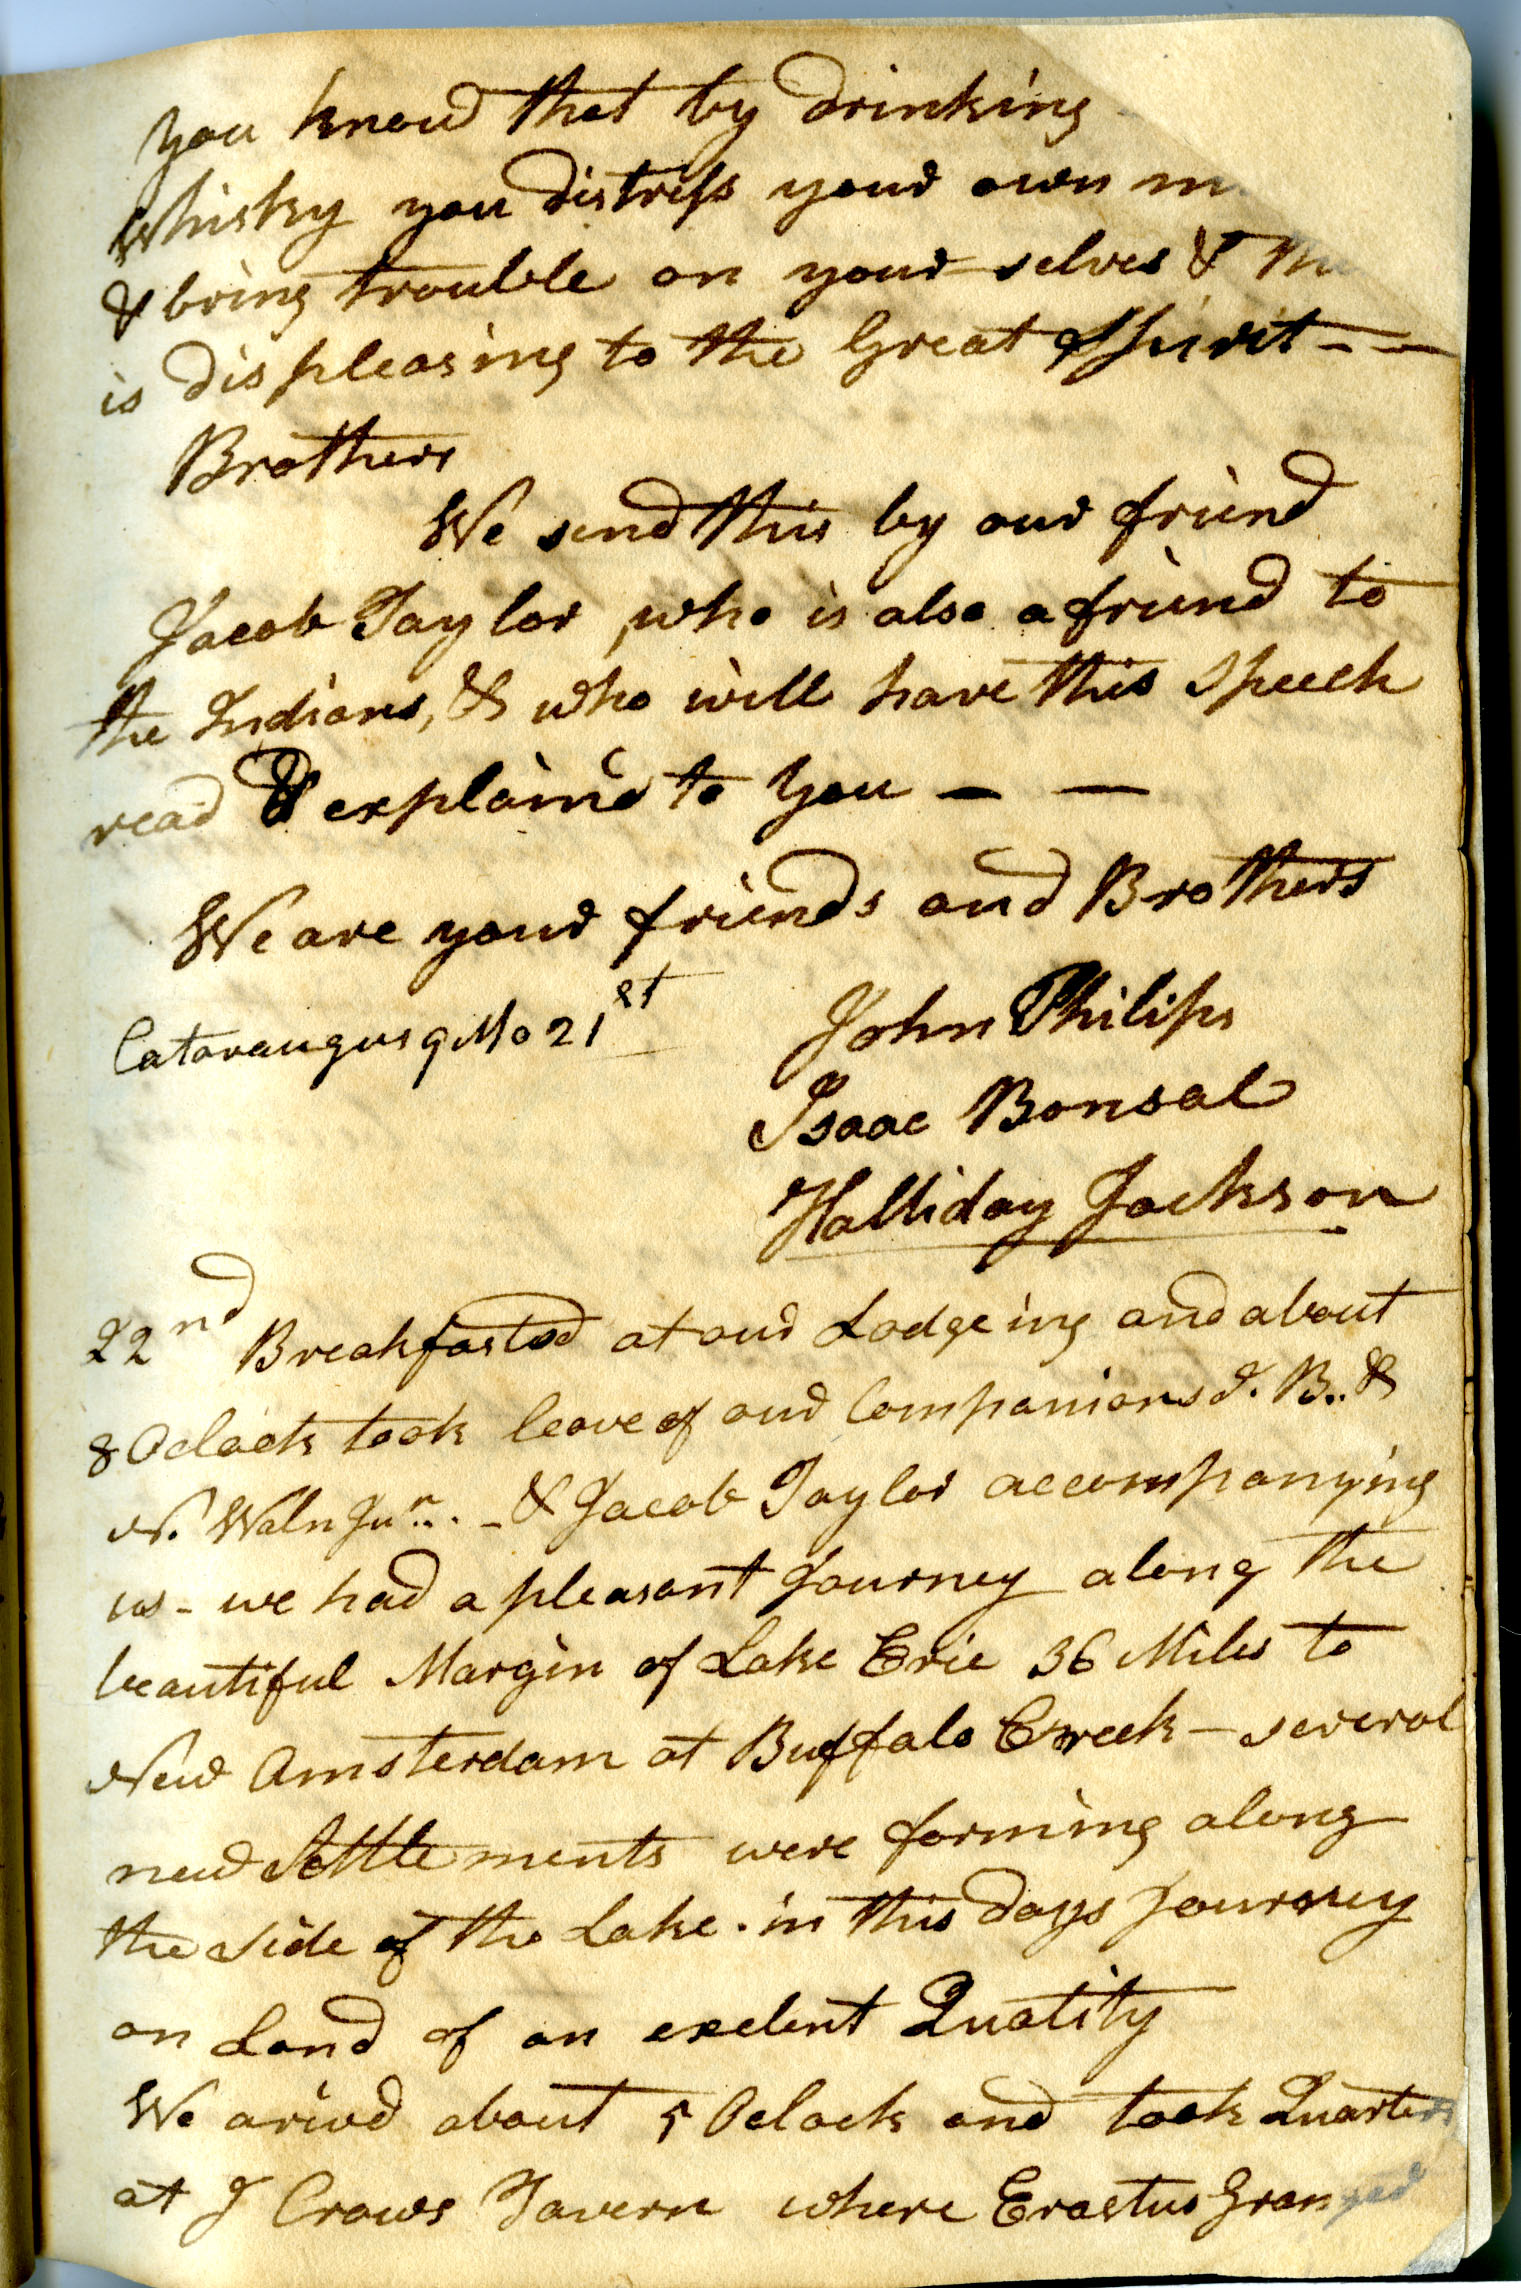 you know that by drinking
Whisky you distress your own
& bring trouble on your selves &
is displeasing to the Great Spirit - -
Brothers
We send this by our friend
Jacob Taylor, who is also a friend to
the Indians, & who will have this Speech
read & explain'd to You - -
We are your friends and Brothers
Cataraugus 9 Mo 21st
John Philips
Isaac Bonsal
Halliday Jackson
22nd Breakfasted at our Lodgeing and about
8 Oclock took leave of our Companions I. B.. &
N. Waln Junr.. - & Jacob Taylor accompanying
us - we had a pleasant Journey along the
beautiful Margin of Lake Erie 36 Miles to
New Amsterdam at Buffalo Creek - several
new Settlements were forming along
the side of the Lake. in this days Journey
on Land of an exelent Quality
We arived about 5 Oclock and took Quarters
at J Crows Tavern where Erastus Granger